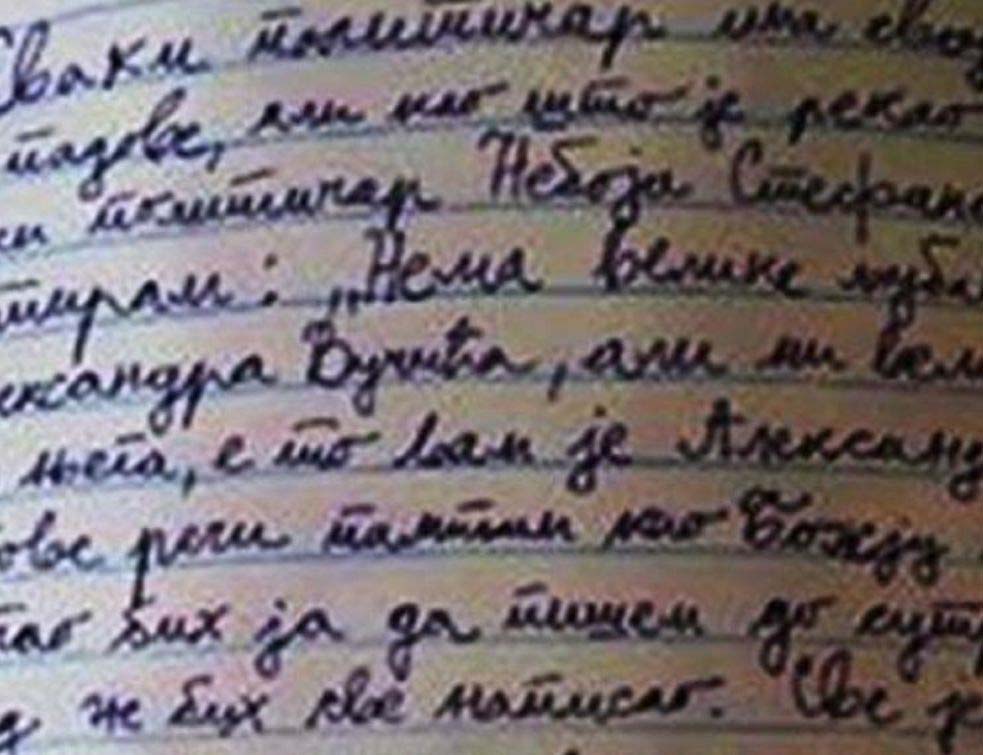 Сваки политичар има свој
падове, али као што је рекао
ки политичар Небојa Стефано
тирам: „Нема велике љуба
ександра Вучића, али ни вели
њега, е то вам је Александ
ове речи памтим као Божју
тао бих ја да пишем до сутр
д не бих све написао. Све је